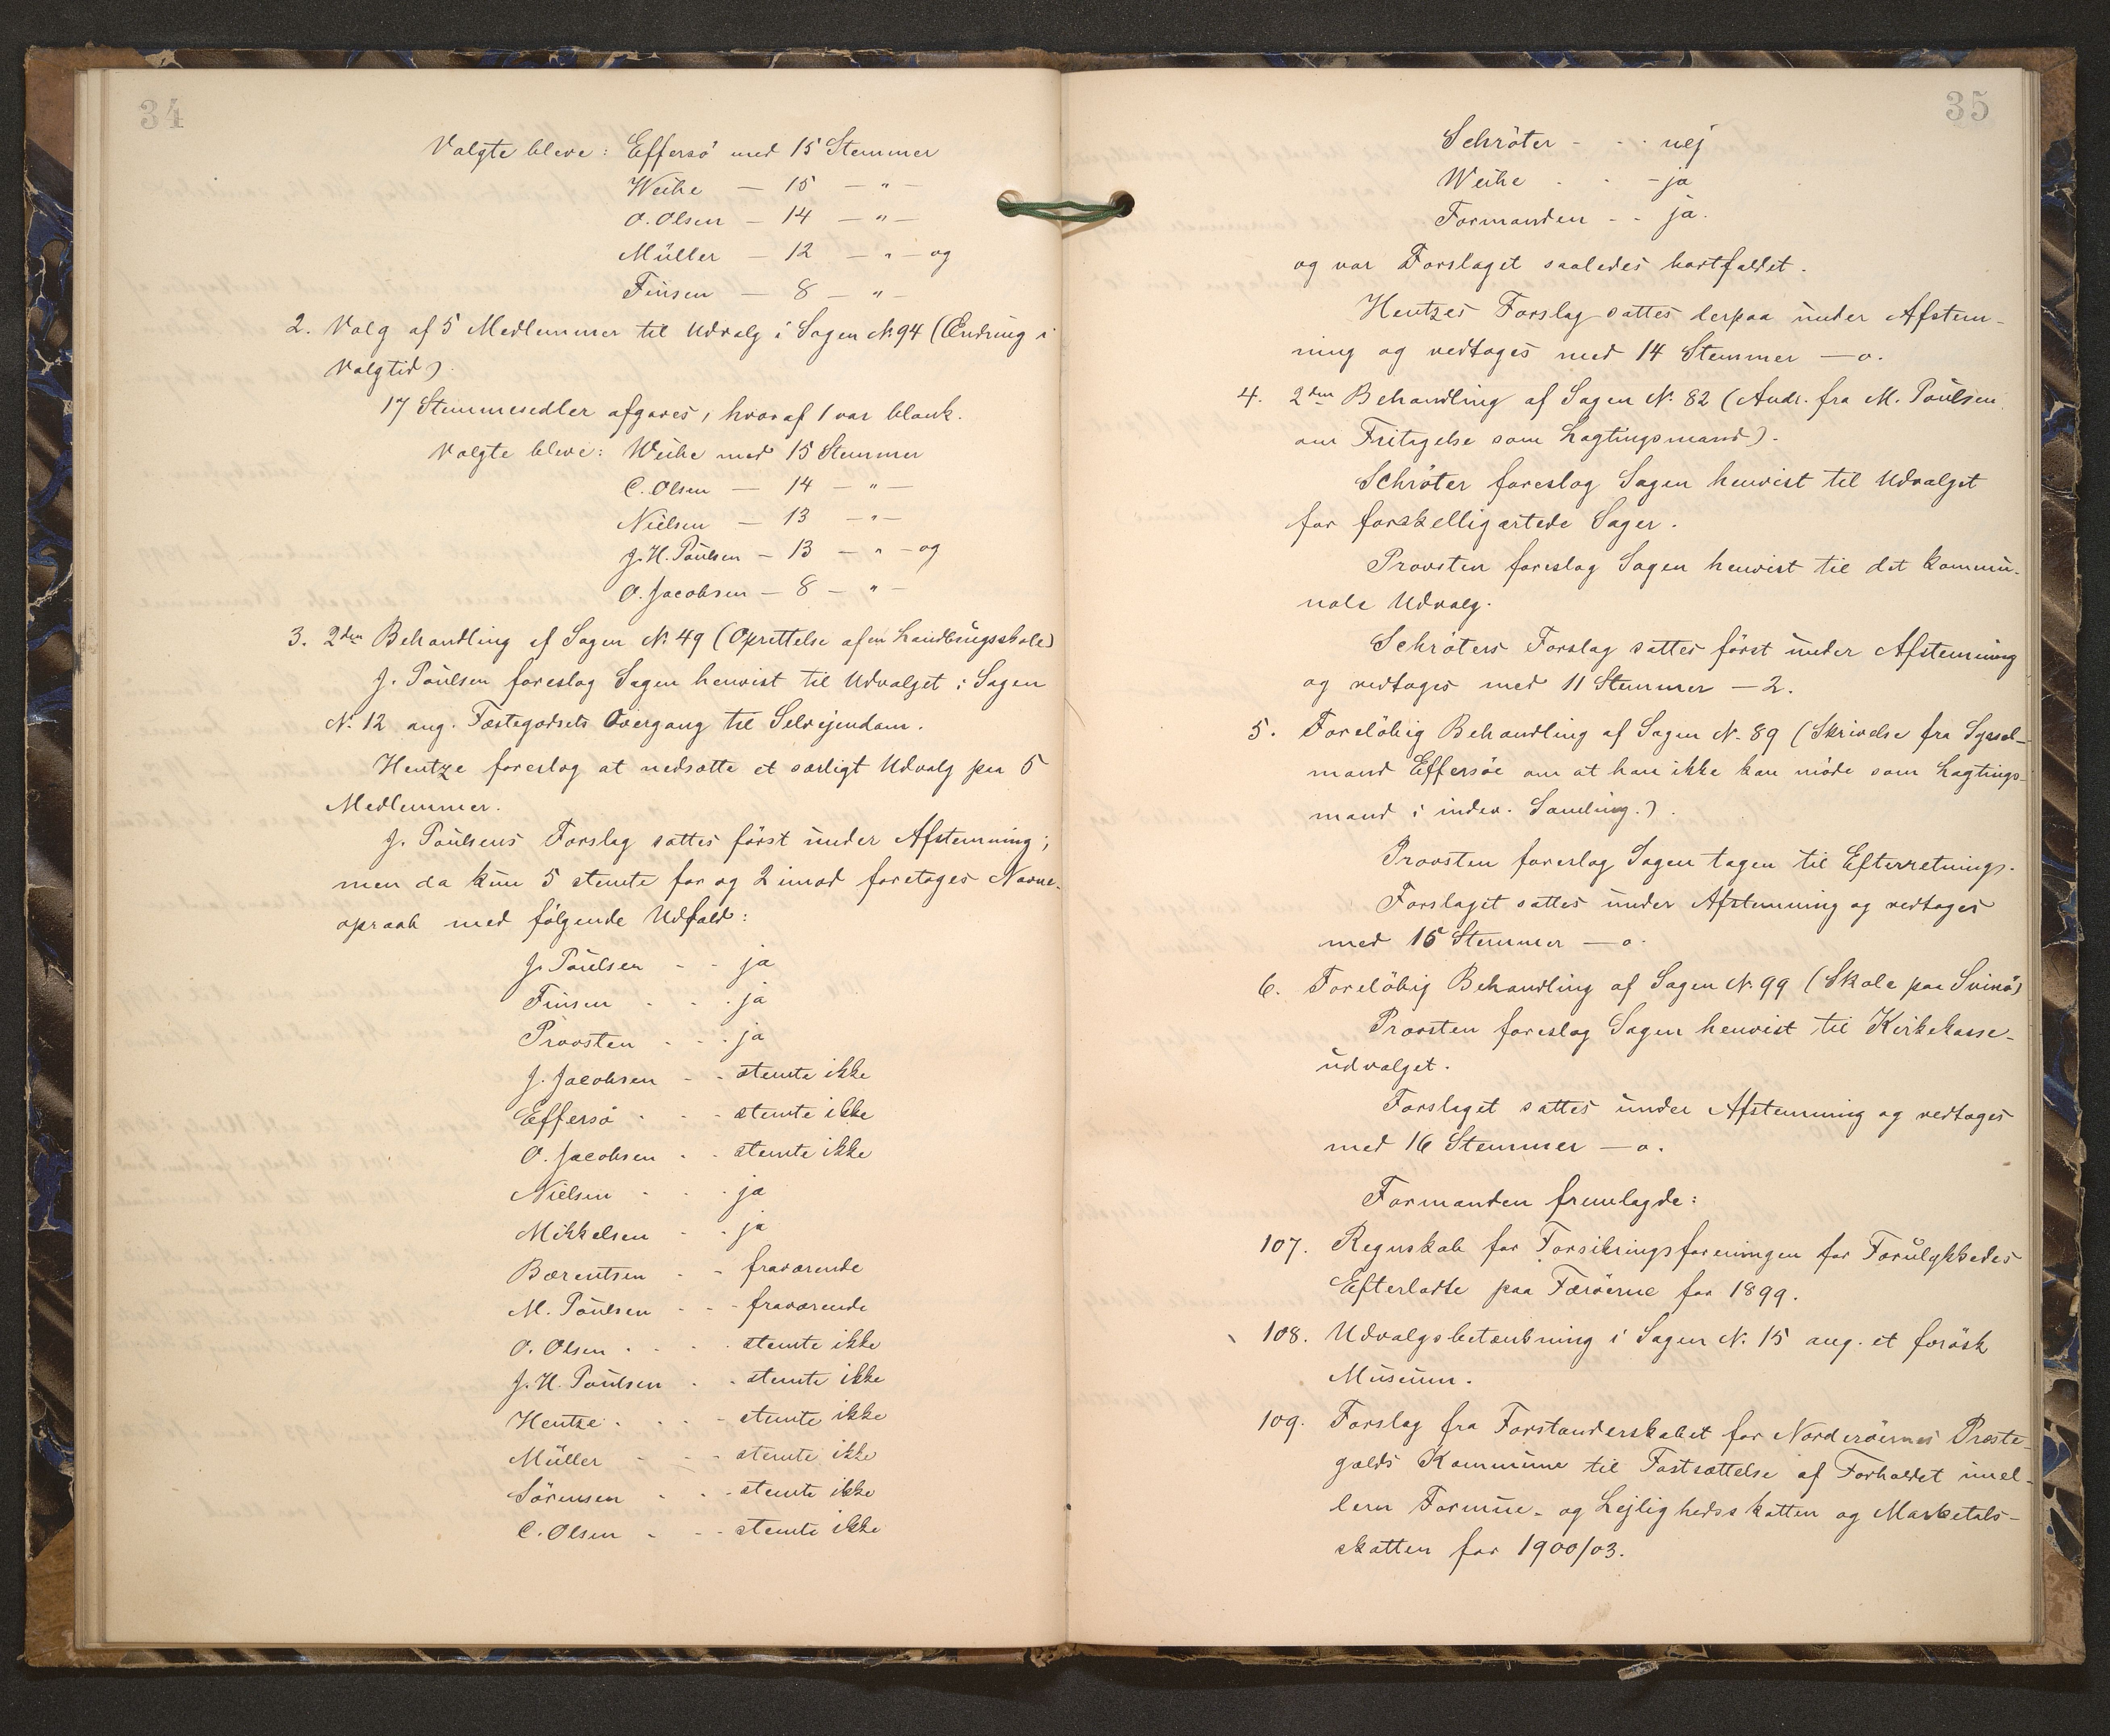 34
Valgte bleve: Effersö med 15 Stemmer
Weihe — 15 — " —
O. Olsen — 14 — " —
Müller — 12 — " — og
Finsen — 8 — " —
2. Valg af 5 Medlemmer til Udvalg i Sagen N. 94 (Ændring i
Valgtid).
17 Stemmesedler afgaves, hvoraf 1 var blank.
Valgte bleve: Weihe med 15 Stemmer
C. Olsen — 14 — " —
Nielsen — 13 — " —
J. H. Poulsen — 13 — " — og
O. Jacobsen — 8 — " —
3. 2den Behandling af Sagen N. 49 (Oprettelse af en Landbrugsskole)
J. Poulsen foreslog Sagen henvist til Udvalget i Sagen
N. 12 ang. Fæstegodsets Overgang til Selvejendom.
Hentze foreslog at nedsætte et særligt Udvalg paa 5
Medlemmer.
J. Poulsens Forslag sattes först under Afstemning;
men da kun 5 stemte for og 2 imod foretoges Navne-
opraab med fölgende Udfald:
J. Poulsen - - ja
Finsen - - - ja
Provsten - - - ja
J. Jacobsen - - stemte ikke
Effersö - - - stemte ikke
O. Jacobsen - - stemte ikke
Nielsen - - - ja
Mikkelsen - - ja
Bærentsen - - fraværende
M. Poulsen - - - fraværende
O. Olsen - - - - stemte ikke
J. H. Poulsen - - stemte ikke
Hentze - - - - stemte ikke
Müller - - - stemte ikke
Sörensen - - - stemte ikke
C. Olsen - - - stemte ikke
35
Schröter - - - nej
Weihe - - - ja
Formanden - - ja.
og var Forslaget saaledes bortfaldet.
Hentzes Forslag sattes derpaa under Afstem-
ning og vedtoges med 14 Stemmer — o.
4. 2den Behandling af Sagen N. 82 (Andr. fra M. Poulsen
om Fritagelse som Lagtingsmand).
Schröter foreslog Sagen henvist til Udvalget
for forskelligartede Sager.
Provsten foreslog Sagen henvist til det kommu-
nale Udvalg.
Schröters Forslag sattes först under Afstemning
og vedtoges med 11 Stemmer — 2.
5. Forelöbig Behandling af Sagen N. 89 (Skrivelse fra Syssel-
mand Effersöe om at han ikke kan möde som Lagtings-
mand i indev. Samling.).
Provsten foreslog Sagen tagen til Efterretnings.
Forslaget sattes under Afstemning og vedtoges
med 15 Stemmer — o.
6. Forelöbig Behandling af Sagen N. 99 (Skole paa Svinö)
Provsten foreslog Sagen henvist til Kirkekasse-
udvalget.
Forslaget sattes under Afstemning og vedtoges
med 16 Stemmer — o.
Formanden fremlagde:
107. Regnskab for Forsikringsforeningen for Forulykkedes
Efterladte paa Færöerne for 1899.
108. Udvalgsbetænkning i Sagen N. 15 ang. et færösk
Museum.
109. Forslag fra Forstanderskabet for Norderöernes Præste-
gælds Kommune til Fastsættelse af Forholdet imel-
lem Formue- og Lejlighedsskatten og Marketals-
skatten for 1900/03.